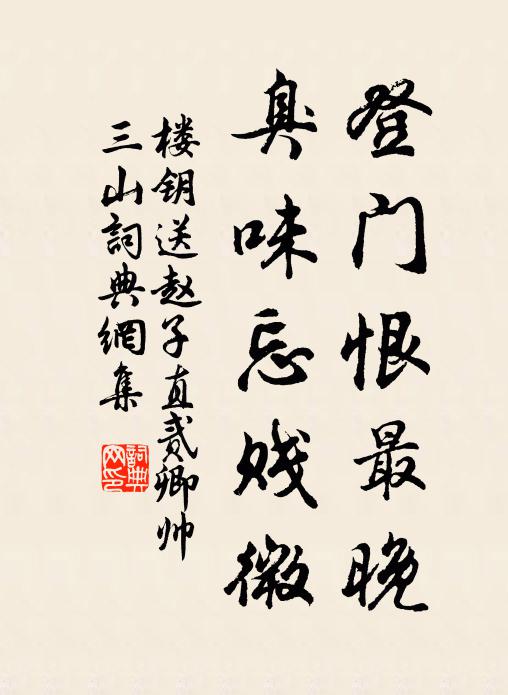 登门恨最晚
臭味忘贱微
楼钥送赵子直贰卿帅
三山詞典網集
詞典
网印